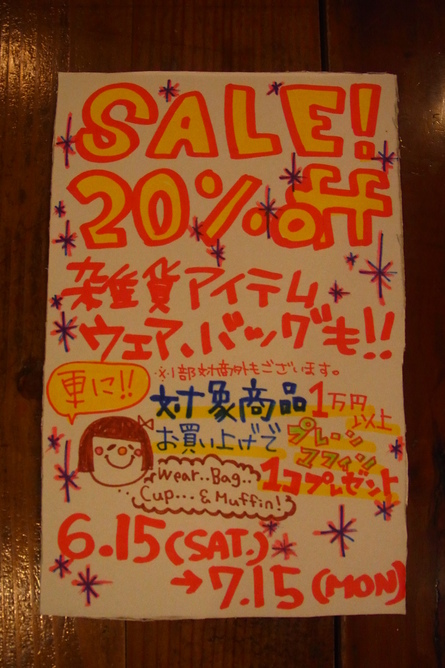 SALE!
20%off
雑貨アイテム
ウェア、バッグも!!
※1部対商外もございます。
更に!!
対象商品1万円以上
お買い上げで
プレーンマフィン
1コプレゼント
Wear..Bag..
Cup...&Muffin!
6.15(SAT.)
→7.15(MON)